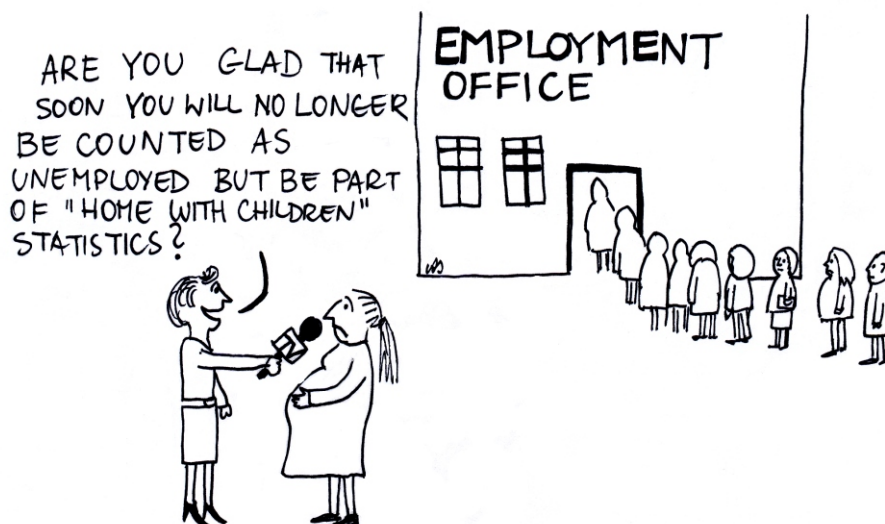 ARE YOU GLAD THAT
SOON YOU WILL NO LONGER
BE COUNTED AS
UNEMPLOYED BUT BE PART
OF "HOME WITH CHILDREN"
STATISTICS?
EMPLOYMENT
OFFICE